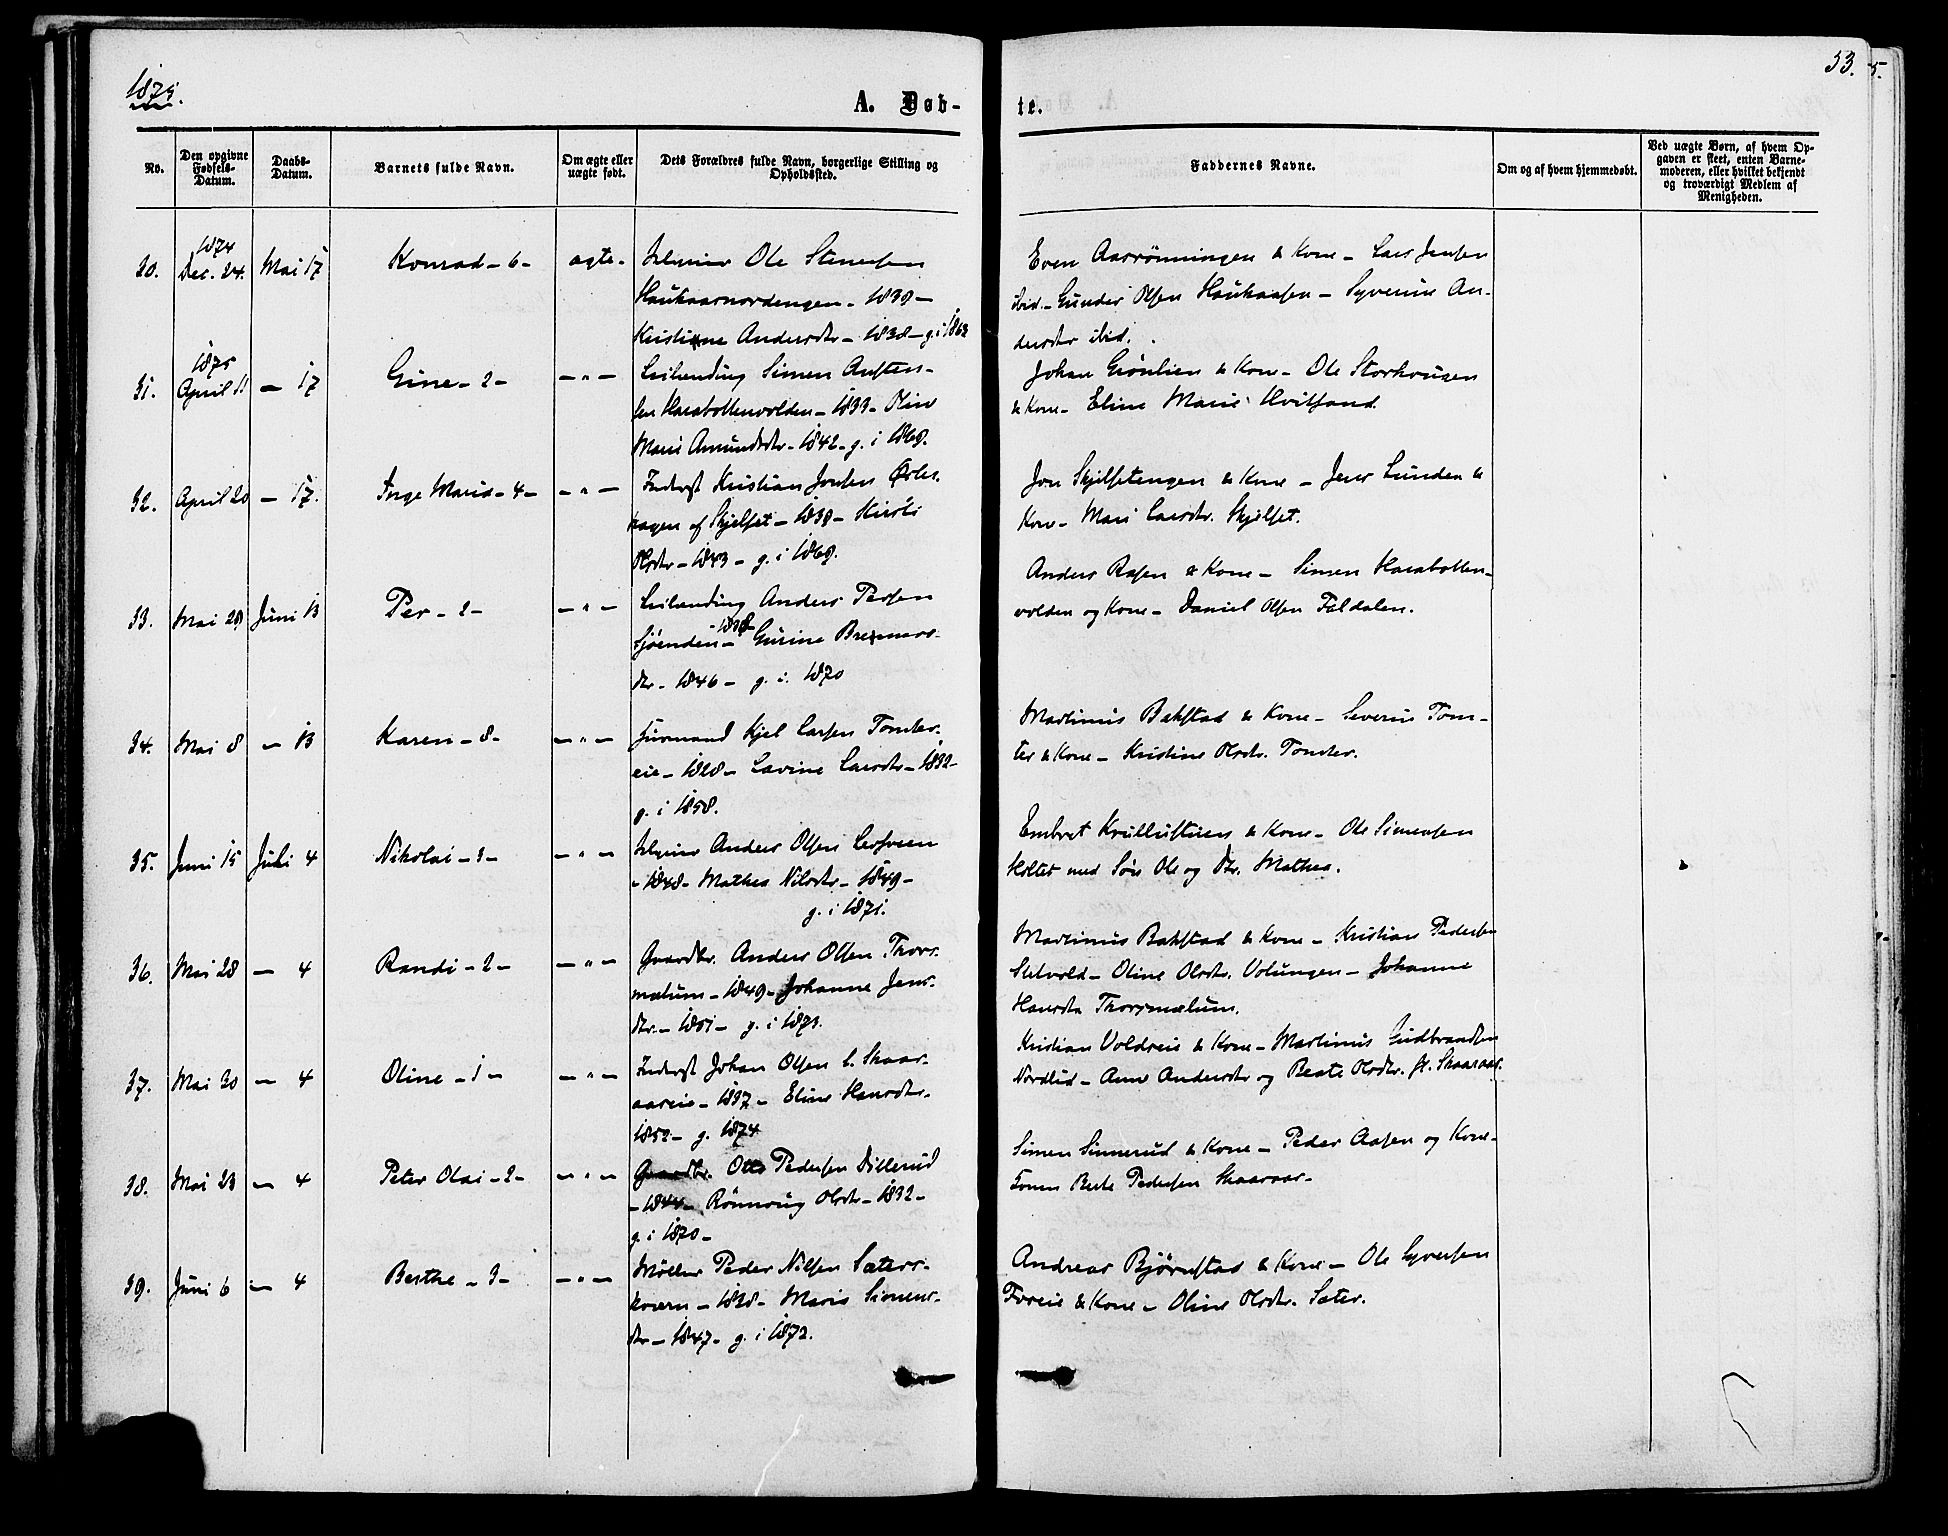 1875.
53.
5.
A. Døb-
te.
No.
Den opgivne
Fødsels-
Datum.
Daabs-
Datum.
Barnets fulde Navn.
Om ægte eller
uægte født.
Dets Forældres fulde Navn, borgerlige Stilling og
Opholdssted.
Faddernes Navne.
Om og af hvem hjemmedøbt.
Ved uægte Børn, af hvem Op-
gaven er skeet, enten Barne-
moderen, eller hvilket bekjendt
og troværdigt Medlem af
Menigheden.
30.
1874
Dec. 24.
Mai 17
Konrad - 6 -
ægte.
Ole Stenersen
Haukaasnordengen - 1838 -
Kristiane Andersdtr - 1838 - g. i 1863
Even Aasrönningen & Kone - Lars Jensen
ibid - Gunder Olsen Haukaasen - Syverine An-
dersdtr ibid.
31.
1875
April 11
- 17
Gine - 2 -
- " -
Leilending Simen Austen-
sen Harabottenvolden - 1833 - Oline
Marie Amundsdtr - 1842 - g. i 1868.
Johan Grönlien & Kone - Ole Storhougen
& Kone - Eline Marie
32.
April 20
- 17.
Inge Maria - 4 -
- " -
Inderst Kristian Jonsen
hagen af Skjelset - 1838 - Kirsti
Olsdtr - 1843 - g. i 1868.
Jon Skjelsetengen & Kone - Jens Lunden &
Kone - Mari Larsdtr. Skjelset.
33.
Mai 29
Juni 13
Per - 2 -
- " -
Leilending Anders Persen
Sjøenden - 1838 Gurine
dtr - 1846 - g. i 1870
Anders Aasen & Kone - Simen Harabotten-
volden og Kone - Daniel Olsen Faldalen.
34.
Mai 8
- 13
Karen - 8 -
- " -
Husmand Kjel Larsen Tomter-
eie - 1828 - Lavine Larsdtr - 1832 -
g. i 1858.
Martinus Bakstad & Kone - Severin Tom-
ter & Kone - Kristine Olsdtr. Tomter.
35.
Juni 15
Juli 4
Nikolai - 3 -
- " -
Anders Olsen
- 1848 - Mathea Nilsdtr - 1849 -
g. i 1871.
Embret & Kone - Ole Simensen
Holtet med Søn Ole og Dtr. Mathea.
36.
Mai 28
- 4
Randi - 2 -
- " -
Gaardbr. Anders Olsen Thors-
mælum - 1849 - Johanne Jens-
dtr. - 1851 - g. i 1873.
Martinus Bakstad & Kone - Kristian Pedersen
Oline Olsdtr. Volungen - Johanne
Hansdtr Thorsmælum.
37.
Mai 30
- 4
Oline - 1 -
- " -
Inderst Johan Olsen Skaar-
aareie - 1837 - Eline Hansdtr.
1852 - g. 1874
Kristian Voldseie & Kone - Martinus Gudbrandsen
Nordlid - Anne Andersdtr og Beate Olsdtr. Skaaraar.
38.
Mai 23
- 4
Peter Olai - 2 -
- " -
Gaardbr. Otto Pedersen Dillerud
- 1844 - Rönnoug Olsdtr - 1832 -
g. i 1870 -
Simen Sinnerud & Kone - Peder Aasen og Kone -
Pedersen Skaaraar -
39.
Juni 6
- 4
Berthe - 3 -
- " -
Møller Peder Nilsen Sæters-
kværn - 1828 - Maria Simens-
dtr - 1847 - g. i 1872.
Andreas Bjørnstad & Kone - Ole Syversen
Foseie & Kone - Oline Olsdtr. Sæter.